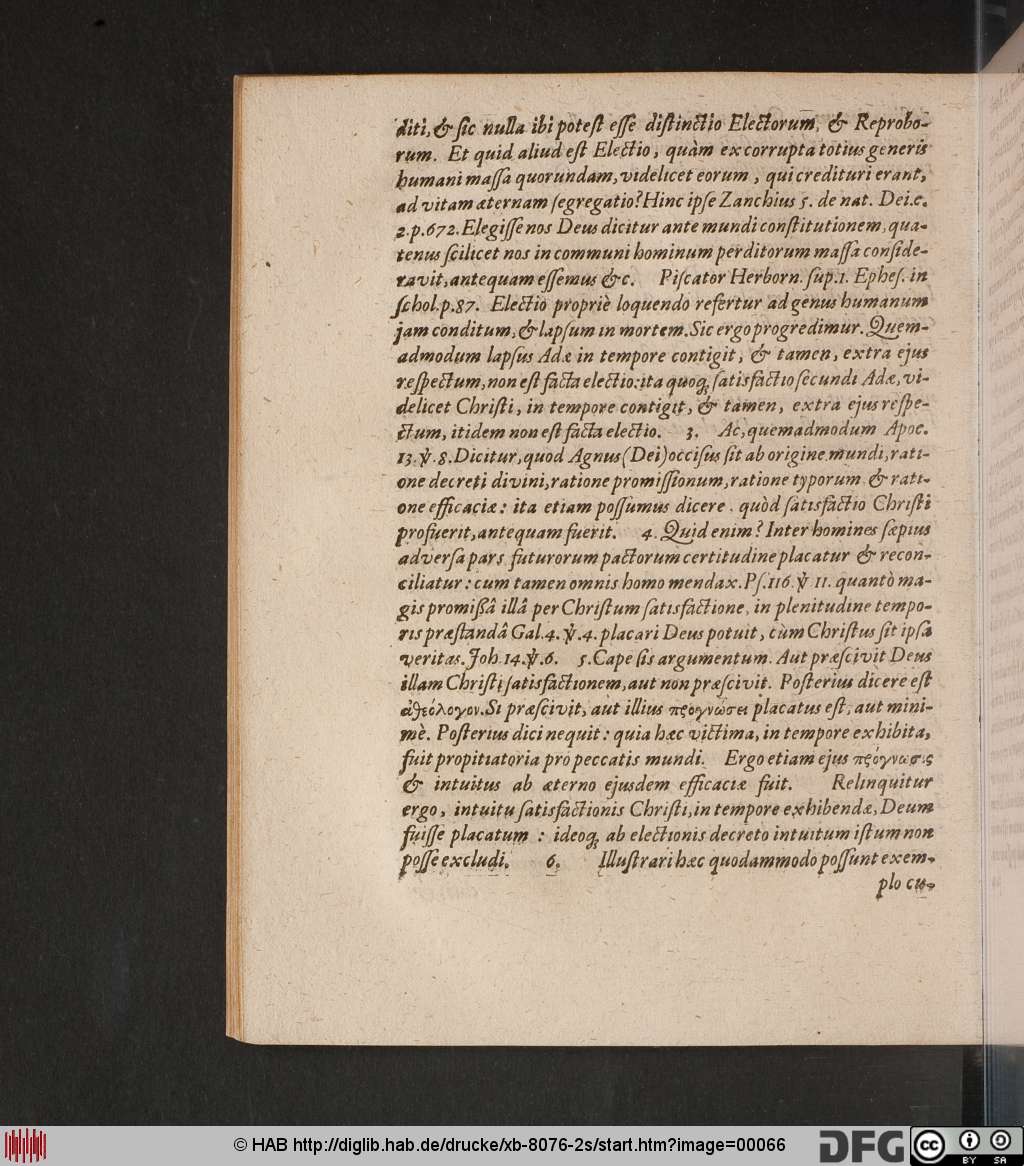 diti, & ſic nulla ibi poteſt eſſe diſtinctio Electorum, & Reprobo-
rum. Et quid aliud eſt Electio, quàm ex corrupta totius generis
humani maſſa quorundam, videlicet eorum, qui credituri erant,
ad vitam æternam ſegregatio? Hinc ipſe Zanchius 5. de nat. Dei.c.
2.p.672. Elegiſſe nos Deus dicitur ante mundi conſtitutionem, qua-
tenus ſcilicet nos in communi hominum perditorum maſſa conſide-
ravit, antequam eſſemus &c. Piſcator Herborn. ſup.1. Epheſ. in
ſchol.p.87. Electio propriè loquendo refertur ad genus humanum
jam conditum, & lapſum in mortem. Sic ergo progredimur. Quem-
admodum lapſus Adæ in tempore contigit, & tamen, extra ejus
reſpectum, non eſt facta electio: ita quoq; ſatisfactio ſecundi Adæ, vi-
delicet Chriſti, in tempore contigit, & tamen, extra ejus reſpe-
ctum, itidem non eſt facta electio. 3. Ac, quemadmodum Apoc.
13.℣.8. Dicitur, quod Agnus (Dei) occiſus ſit ab origine mundi, rati-
one decreti divini, ratione promiſſionum, ratione typorum & rati-
one efficaciæ: ita etiam poſſumus dicere, quòd ſatisfactio Chriſti
profuerit, antequam fuerit. 4. Quid enim? Inter homines ſæpius
adverſa pars futurorum pactorum certitudine placatur & recon-
ciliatur: cum tamen omnis homo mendax. Pſ.116.℣ 11. quantò ma-
gis promißâ illâ per Chriſtum ſatisfactione, in plenitudine tempo-
ris præſtandâ Gal.4.℣.4. placari Deus potuit, cùm Chriſtus ſit ipſa
veritas. Joh.14.℣.6. 5. Cape ſis argumentum. Aut præſcivit Deus
illam Chriſti ſatisfactionem, aut non præſcivit. Poſterius dicere eſt
ἀθεόλογον. Si præſcivit, aut illius προγνώσει placatus eſt, aut mini-
mè. Poſterius dici nequit: quia hæc victima, in tempore exhibita,
fuit propitiatoria pro peccatis mundi. Ergo etiam ejus πρόγνωσις
& intuitus ab æterno ejusdem efficaciæ fuit. Relinquitur
ergo, intuitu ſatisfactionis Chriſti, in tempore exhibendæ, Deum
fuiſſe placatum : ideoq; ab electionis decreto intuitum iſtum non
poſſe excludi. 6. Illuſtrari hæc quodammodo poſſunt exem-
plo cu-
© HAB http://diglib.hab.de/drucke/xb-8076-2s/start.htm?image=00066
DFG
cc BY SA